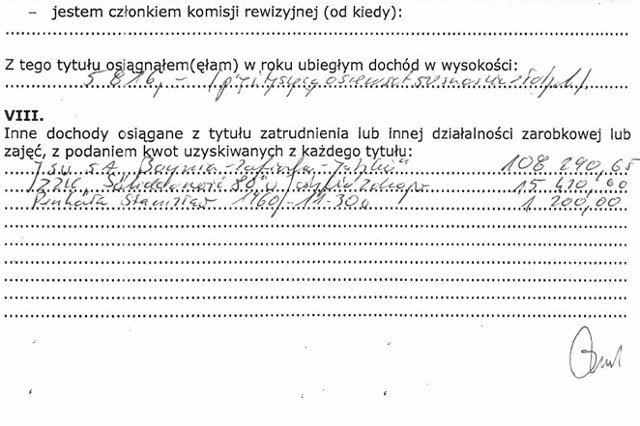 – jestem członkiem komisji rewizyjnej (od kiedy):
Z tego tytułu osiągnąłem(ęłam) w roku ubiegłym dochód w wysokości:
5 816,- (pięć tysięcy osiemset szesnaście zł)
VIII.
Inne dochody osiągane z tytułu zatrudnienia lub innej działalności zarobkowej lub
zajęć, z podaniem kwot uzyskiwanych z każdego tytułu:
JSW S.A. "Borynia-Zofiówka-Jastrzębie" 108 290,65
"Solidarność 80" 15 410,00
Stanisław 1 200,00